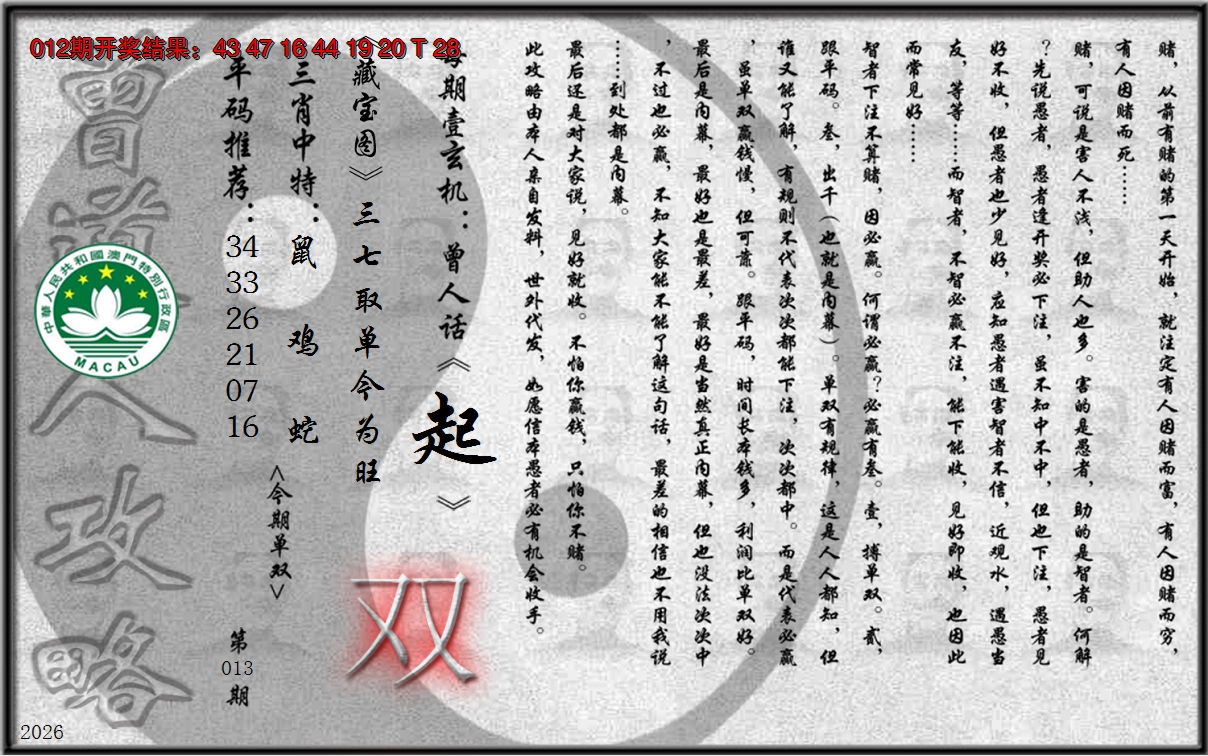 012期开奖结果：43 47 16 44 19 20 T 28
赌，从前有赌的第一天开始，就注定有人因赌而富，有人因赌而穷，
有人因赌而死……
赌，可说是害人不浅，但助人也多。害的是愚者，助的是智者。何解
？先说愚者，愚者逢开奖必下注，虽不知中不中，但也下注，愚者见
好不收，但愚者也少见好，应知愚者遇害智者不信，近观水，遇愚当
友，等等……而智者，不智必赢不注，能下能收，见好即收，也因此
而常见好……
智者下注不算赌，因必赢。何谓必赢？必赢有叁。壹，搏单双。贰，
跟平码。叁，出千（也就是内幕）。单双有规律，这是人人都知，但
谁又能了解，有规则不代表次次都能下注，次次都中。而是代表必赢
，虽单双赢钱慢，但可靠。跟平码，时间长本钱多，利润比单双好。
最后是内幕，最好也是最差，最好是当然真正内幕，但也没法次次中
，不过也必赢，不知大家能不能了解这句话，最差的相信也不用我说
……到处都是内幕。
最后还是对大家说，见好就收。不怕你赢钱，只怕你不赌。
此攻略由本人亲自发料，世外代发，如愿信本愚者必有机会收手。
每期壹玄机：曾人话《起》
双
《藏宝图》三七取单今为旺
三肖中特：鼠 鸡 蛇
<今期单双>
平码推荐：
34
33
26
21
07
16
第
013
期
曾道人攻略
中華人民共和國澳門特別行政區
MACAU
2026